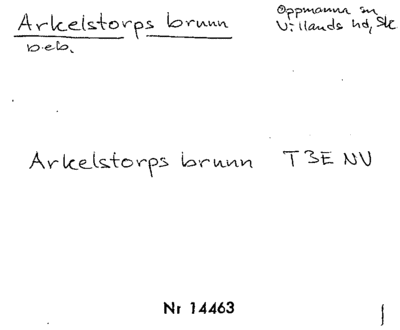 Arkelstorps brunn
beb.
Oppmanna sn
Villands hd, Sk
Arkelstorps brunn T3E NV
Nr 14463